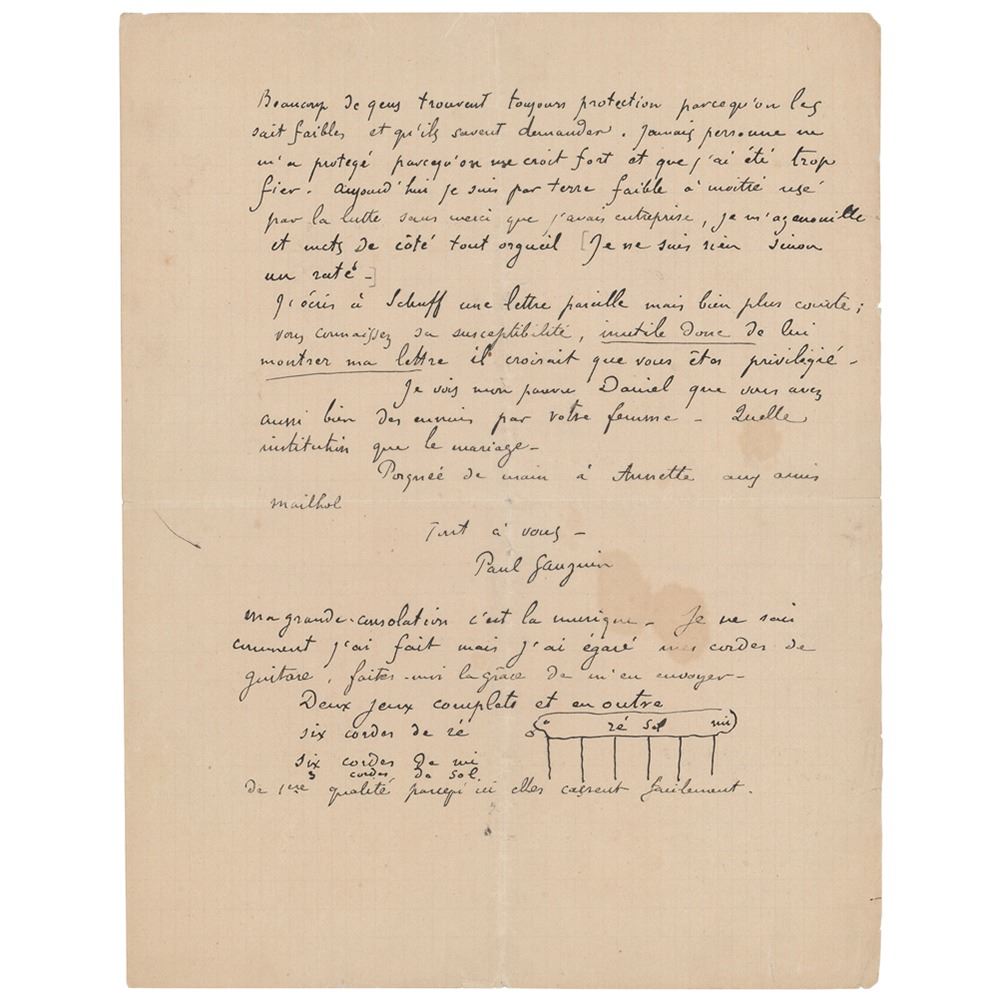 Beaucoup de gens trouvent toujours protection parcequ'on les
sait faibles et qu'ils savent demander. Jamais personne ne
m'a protégé parcequ'on me croit fort et que j'ai été trop
fier. Aujourd'hui je suis par terre faible à moitié usé
par la lutte sans merci que j'avais entreprise, je m'agenouille
et mets de côté tout orgueil [Je ne suis rien sinon
un raté -]
J'écris à Schuff une lettre pareille mais bien plus courte;
vous connaissez sa susceptibilité, inutile donc de lui
montrer ma lettre il croirait que vous êtes priviligié -
Je vois mon pauvre Daniel que vous avez
aussi bien des ennuis par votre femme - Quelle
institution que le mariage -
Poignée de main à Annette aux amis
Mailhol
Tout à vous -
Paul Gauguin
Ma grande consolation c'est la musique - Je ne sais
comment j'ai fait mais j'ai égaré mes cordes de
guitare, faites-moi la grâce de m'en envoyer -
Deux jeux complets et en outre
six cordes de ré
ré sol mi
six cordes de mi
3 cordes de sol
de 1ere qualité parcequ'ici elles cassent facilement.